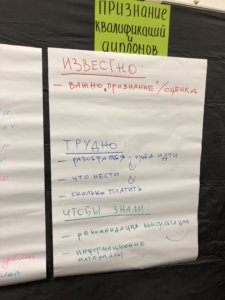 ПРИЗНАНИЕ
КВАЛИФИКАЦИЙ
И
ДИПЛОМОВ
ИЗВЕСТНО:
- ВАЖНО, ПРИЗНАНИЕ / ОЦЕНКА
ТРУДНО
- РАЗОБРАТЬСЯ - КУДА ИДТИ
- ЧТО НЕСТИ
- СКОЛЬКО ПЛАТИТЬ
ЧТОБЫ ЗНАЛИ:
- РЕКОМЕНДАЦИЯ КОНСУЛЬТАЦИИ
- ИНФОРМАЦИОННЫЕ
МАТЕРИАЛЫ